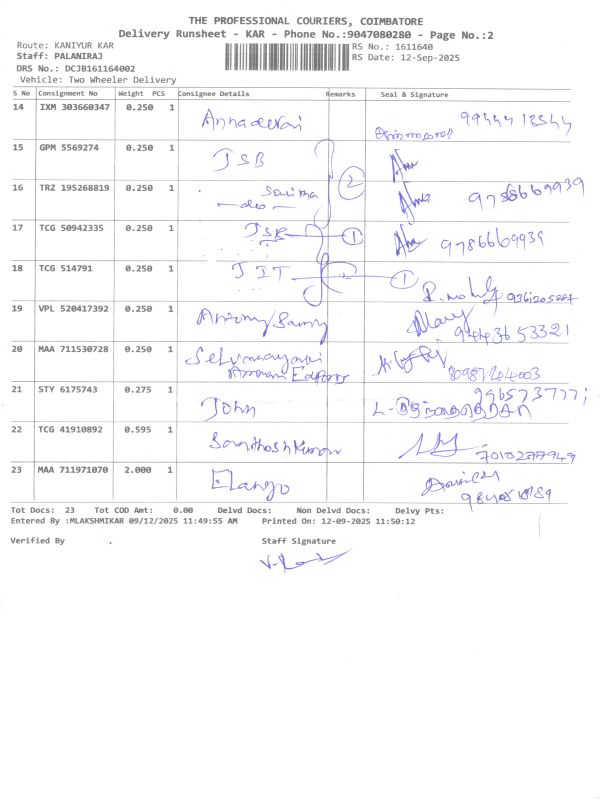 THE PROFESSIONAL COURIERS, COIMBATORE
Delivery Runsheet - KAR - Phone No.:9047080280 - Page No.:2
Route: KANIYUR KAR RS No.: 1611640
Staff: PALANIRAJ RS Date: 12-Sep-2025
DRS No.: DCJB161164002
Vehicle: Two Wheeler Delivery
S No Consignment No Weight PCS Consignee Details Remarks Seal & Signature
14 IXM 303660347 0.250 1 Annadevai 99444 18544
15 GPM 5569274 0.250 1 JSB
16 TRZ 195268819 0.250 1 Saritha 2 9786669939
-do-
17 TCG 50942335 0.250 1 JSB 1 9786669939
18 TCG 514791 0.250 1 JIT 1
19 VPL 520417392 0.250 1 Antony Samy Mary 9443653321
20 MAA 711530728 0.250 1 Selvanayaki
Amman 80987204003
21 STY 6175743 0.275 1 John
22 TCG 41910892 0.595 1 Santhoshkumar 7010277949
23 MAA 711971070 2.000 1 Elango
Tot Docs: 23 Tot COD Amt: 0.00 Delvd Docs: Non Delvd Docs: Delvy Pts:
Entered By :MLAKSHMIKAR 09/12/2025 11:49:55 AM Printed On: 12-09-2025 11:50:12
Verified By . Staff Signature